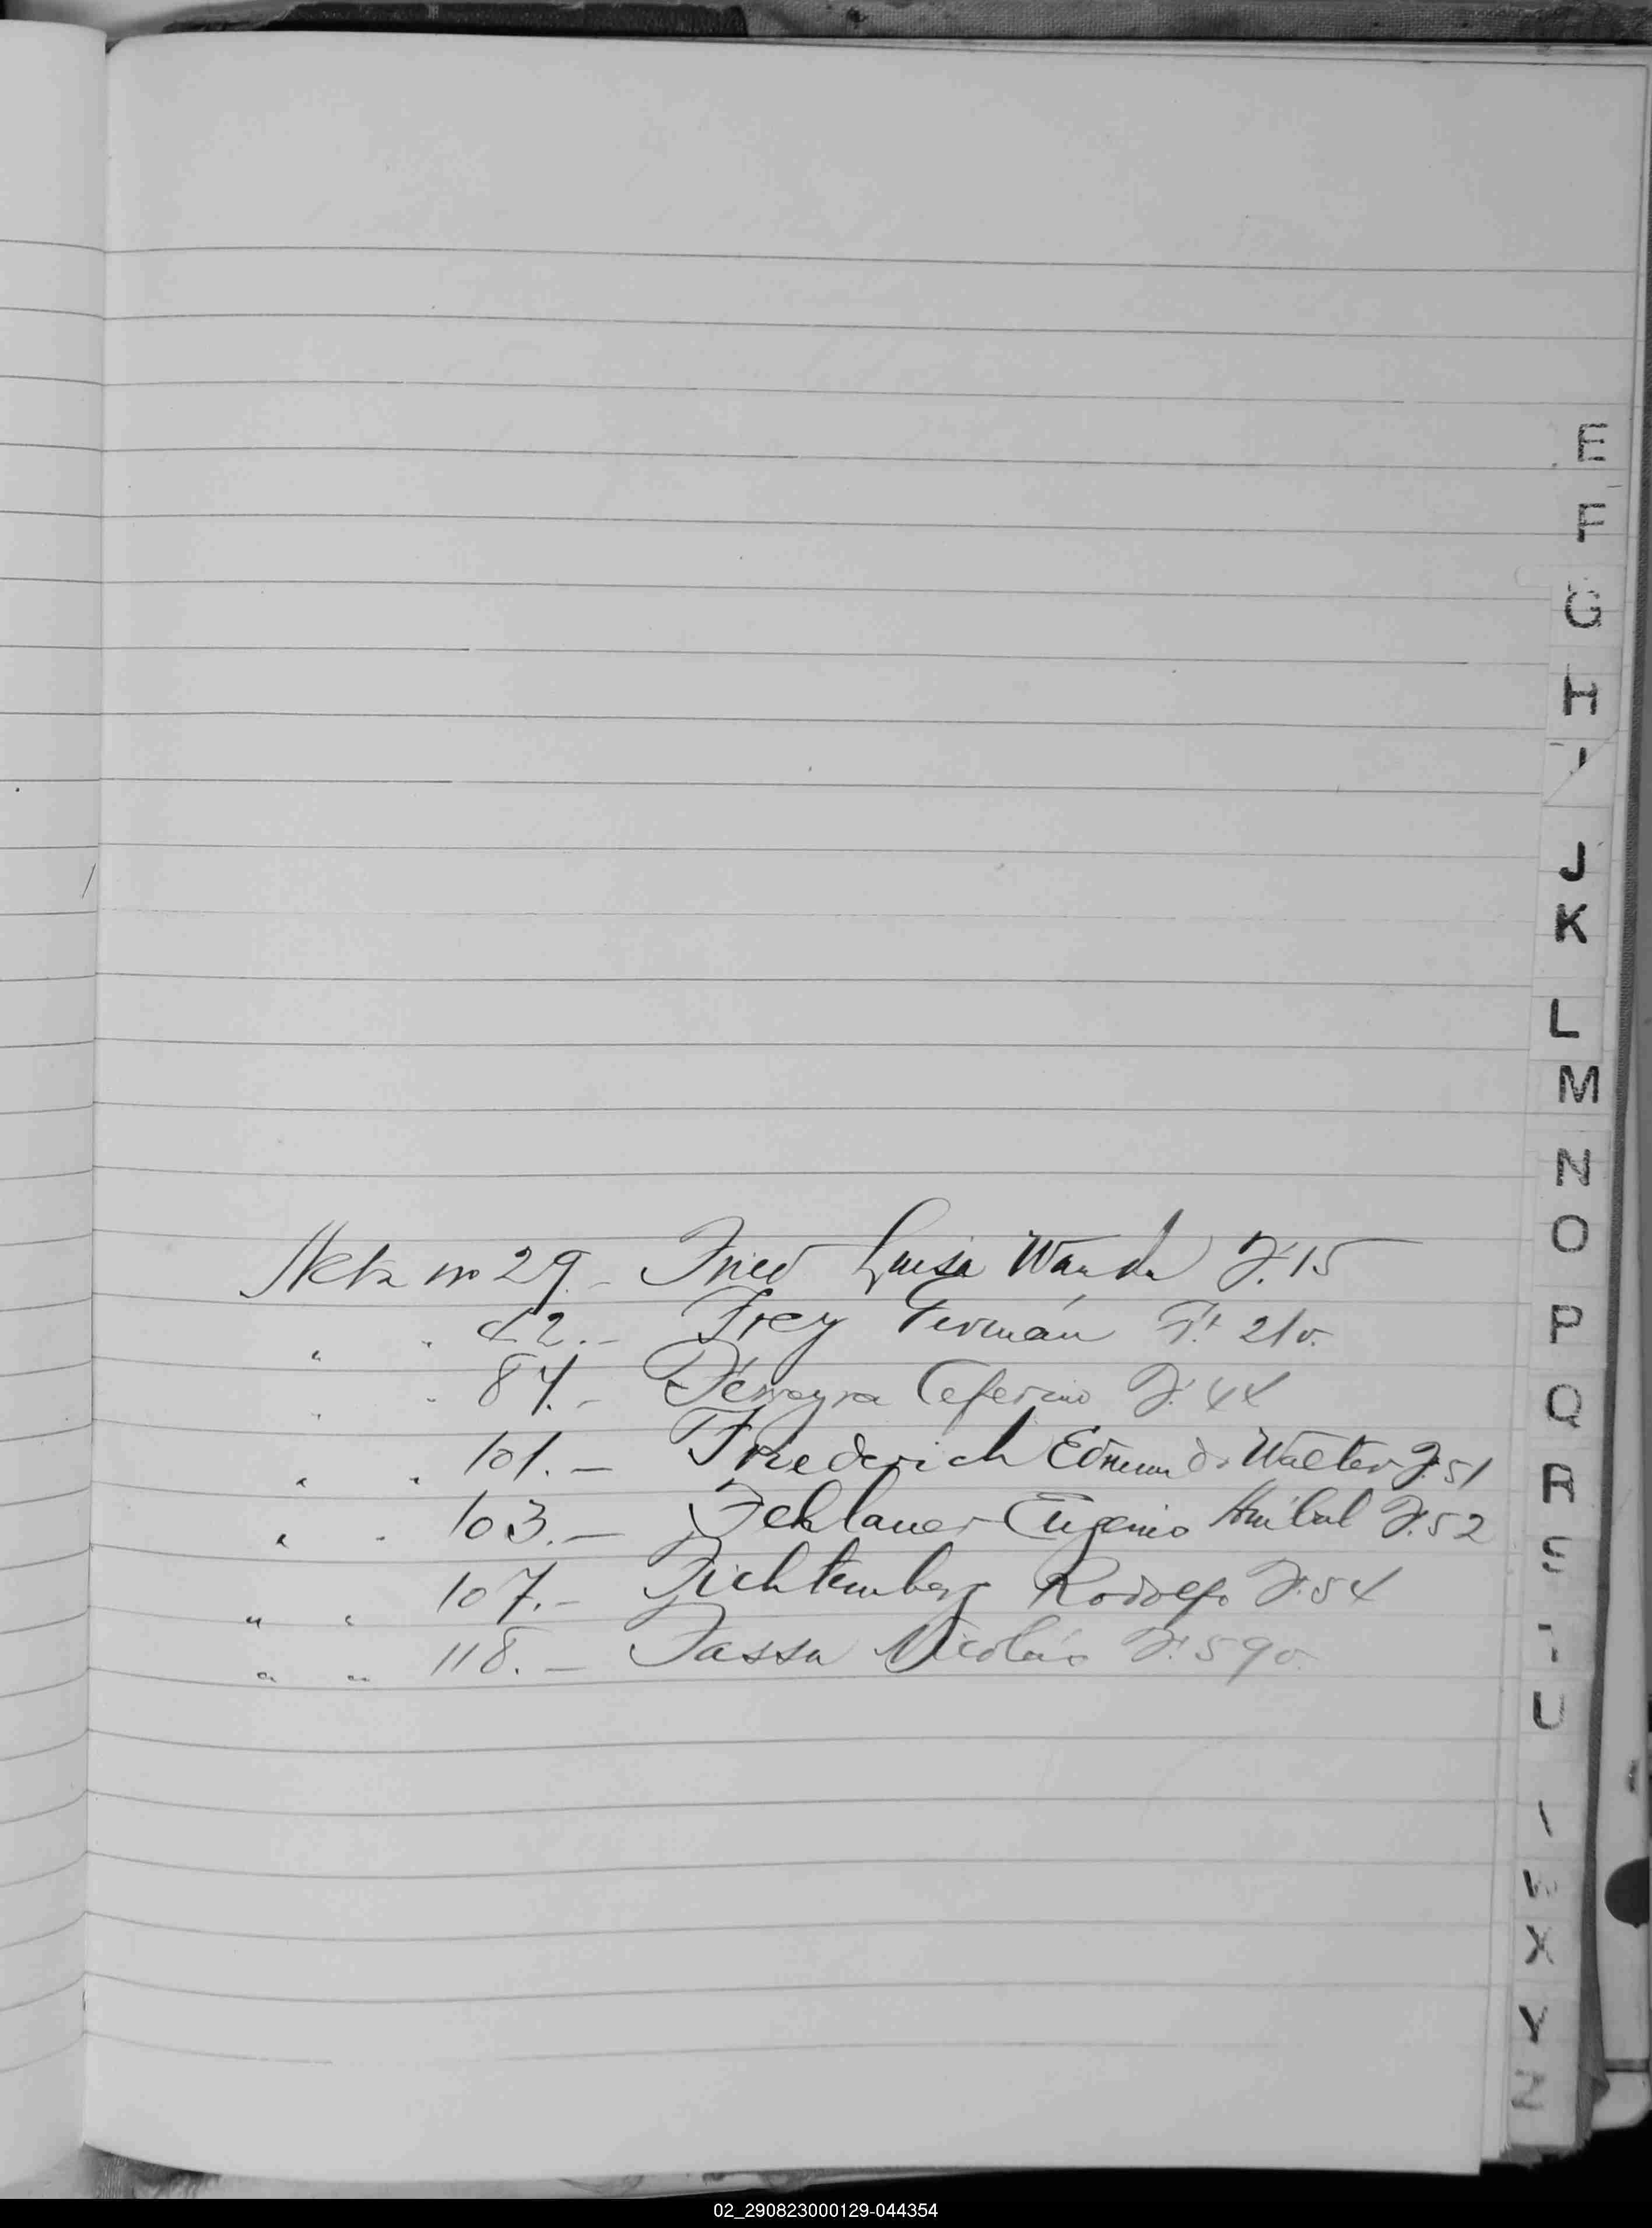 E
F
G
H
I
J
K
L
M
N
O
P
Q
R
S
U
W
X
Y
Z
Acta nº 29.- Fried Luisa Wanda F. 15
" " 42.- Frey Germán F. 21v.
" " 87.- Ferreyra Ceferino F. 44
" " 101.- Friederich Edmundo Walter F. 51
" " 103.- Fehlauer Eugenio Anibal F. 52
" " 107.- Fichtemberg Rodolfo F. 54
" " 118.- Fassa Nicolás F. 59v.
02_290823000129-044354